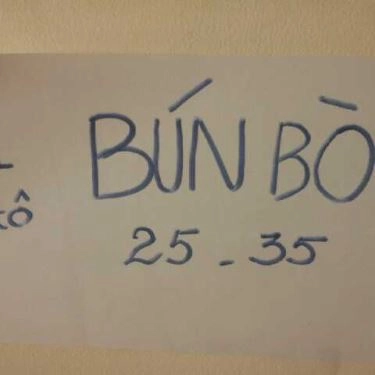 BÚN BÒ
25 - 35